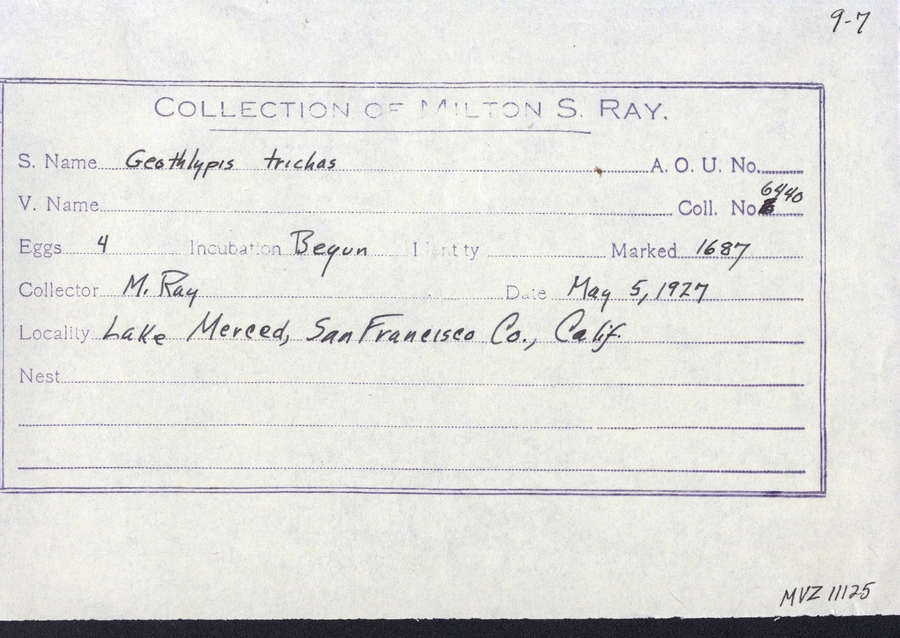 9-7
COLLECTION OF MILTON S. RAY.
S. Name Geothlypis trichas A. O. U. No.
V. Name Coll. No 6440
Eggs 4 Incubation Begun Identity Marked 1687
Collector M. Ray Date May 5, 1927
Locality Lake Merced, San Francisco Co., Calif.
Nest
MVZ 11125